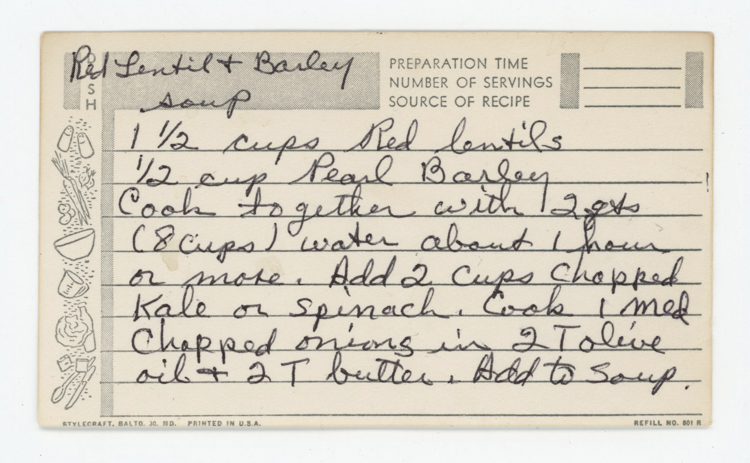 Red Lentil + Barley
soup
DISH
PREPARATION TIME
NUMBER OF SERVINGS
SOURCE OF RECIPE
1 1/2 cups Red lentils
1/2 cup Pearl Barley
Cook together with 2 qts
(8 cups) water about 1 hour
or more. Add 2 cups Chopped
Kale or spinach. Cook 1 med
Chopped onions in 2 T olive
oil + 2 T butter. Add to Soup.
STYLECRAFT, BALTO. 30, MD. PRINTED IN U.S.A.
REFILL NO. 801 R